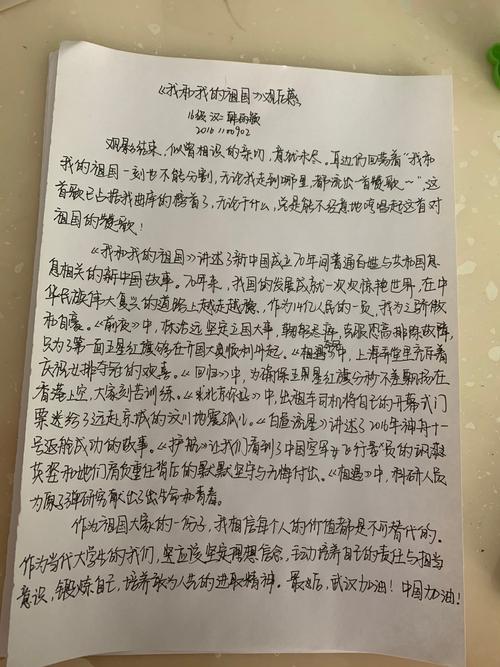 《我和我的祖国》观后感
16级 汉二 韩雨
20161100902
观影结束，似曾相识的亲切，意犹未尽。耳边仍回荡着“我和
我的祖国一刻也不能分割，无论我走到哪里，都流出一首赞歌～”，这
首歌已占据我曲库的榜首了，无论干什么，总是能不经意地哼唱起这首对
祖国的赞歌！
《我和我的祖国》讲述了新中国成立70年间普通百姓与共和国息
息相关的新中国故事。70年来，我国的发展成就一次次惊艳世界，在中
华民族伟大复兴的道路上越走越稳，作为14亿人民的一员，我为之骄傲
和自豪。《前夜》中，林治远坚定立国大事，克服困难排除故障，
只为了第一面五星红旗能够在开国大典顺利升起。《相遇》中，上海弄堂里充斥着
庆祝女排夺冠的欢喜。《回归》中，为确保五星红旗分秒不差飘扬在
香港上空，大家刻苦训练。《北京你好》中，出租车司机将自己的开幕式门
票送给了远赴京城的汶川地震孤儿。《白昼流星》讲述了2016年神舟十一
号返航成功的故事。《护航》让我们看到了中国空军女飞行员的飒爽
英姿和她们肩负重任背后的默默坚守与无悔付出。《相遇》中，科研人员
为原子弹研究献出了生命和青春。
作为祖国大家的一份子，我相信每个人的价值都是不可替代的。
作为当代大学生的我们，更应该坚定理想信念，主动培养自己的责任与担当
意识，锻炼自己，培养敢为人先的进取精神。最后，武汉加油！中国加油！